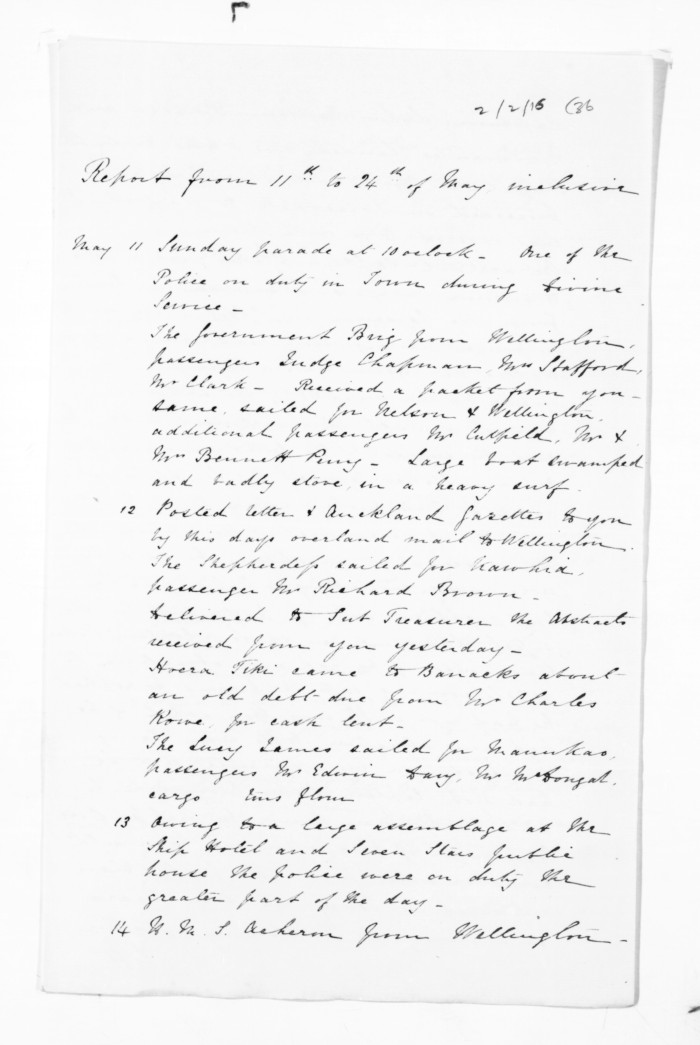 2/2/16 (36
Report from 11th to 24th of May inclusive
May 11 Sunday parade at 10 oclock - One of the
Police on duty in Town during Divine
Service -
The Government Brig from Wellington,
passengers Judge Chapman, Mrs Stafford,
Mr Clark - Received a packet from you -
same, sailed for Nelson & Wellington,
additional passengers Mr Cutfield, Mr &
Mrs Bennett - Large boat swamped
and badly stove, in a heavy surf.
12 Posted letter & Auckland Gazettes to you
by this days overland mail to Wellington.
The Shepherdess sailed for Kawhia,
passenger Mr Richard Brown -
Delivered to Sub Treasurer the Abstracts
received from you yesterday -
Hoera Tiki came to Barracks about
an old debt due from Mr Charles
Rowe, for cash lent -
The Lucy James sailed for Manukao,
passengers Mr Edwin Davy, Mr McDongal,
cargo flour
13 Owing to a large assemblage at the
Ship Hotel and Seven Stars public
house the police were on duty the
greater part of the day -
14 H. M. S. Acheron from Wellington -